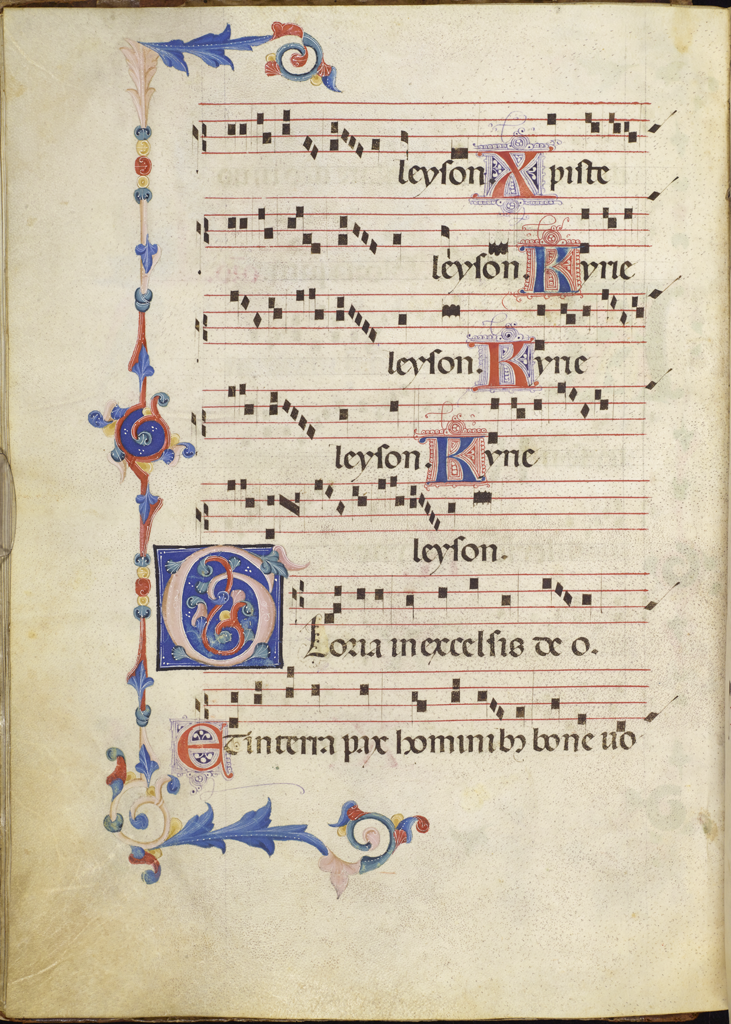 leyson Xpiste
leyson. Kyrie
leyson. Kyrie
leyson. Kyrie
leyson.
Gloria in excelsis de o.
Et in terra pax hominibꝫ bone uo